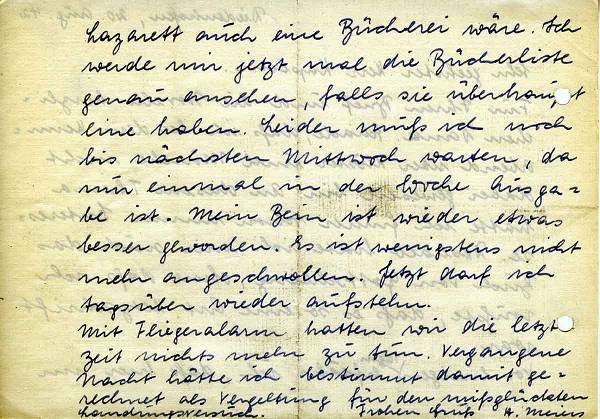 Lazarett auch eine Bücherei wäre. Ich
werde mir jetzt mal die Bücherliste
genau ansehen, falls sie überhaupt
eine haben. Leider muß ich noch
bis nächsten Mittwoch warten, da
nur einmal in der Woche Ausga=
be ist. Mein Bein ist wieder etwas
besser geworden. Es ist wenigstens nicht
mehr angeschwollen. Jetzt darf ich
tagsüber wieder aufstehn.
Mit Fliegeralarm hatten wir die letzt
Zeit nichts mehr zu tun. Vergangene
Nacht hätte ich bestimmt damit ge=
rechnet als Vergeltung für den mißglückten
Landungsversuch. Frohen Gruß H. Meiers